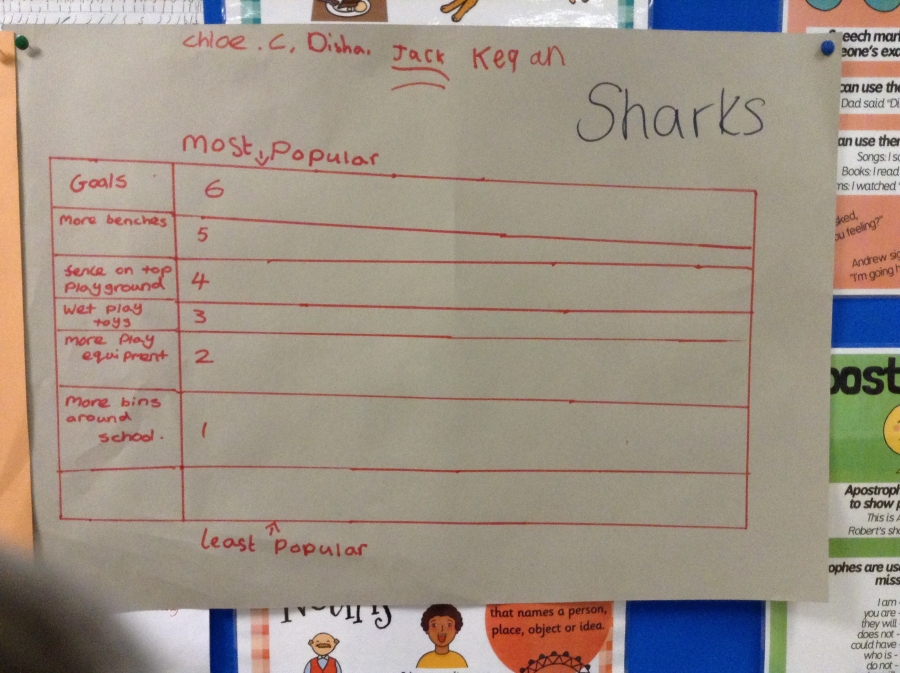 chloe.C, Disha. Jack Kegan
Sharks
Most Popular
Goals 6
More benches 5
fence on top
Playground 4
Wet play
toys 3
More Play
equipment 2
More bins
around
school. 1
least Popular
that names a person,
place, object or idea.
can use the
Dad said
an use ther
Books: I read
I watched
you feeling?"
Andrew
"I'm going
Apostroph
to show
This is
Robert's
are
miss
I am
you are -
they will
does not -
could have
who is -
do not -